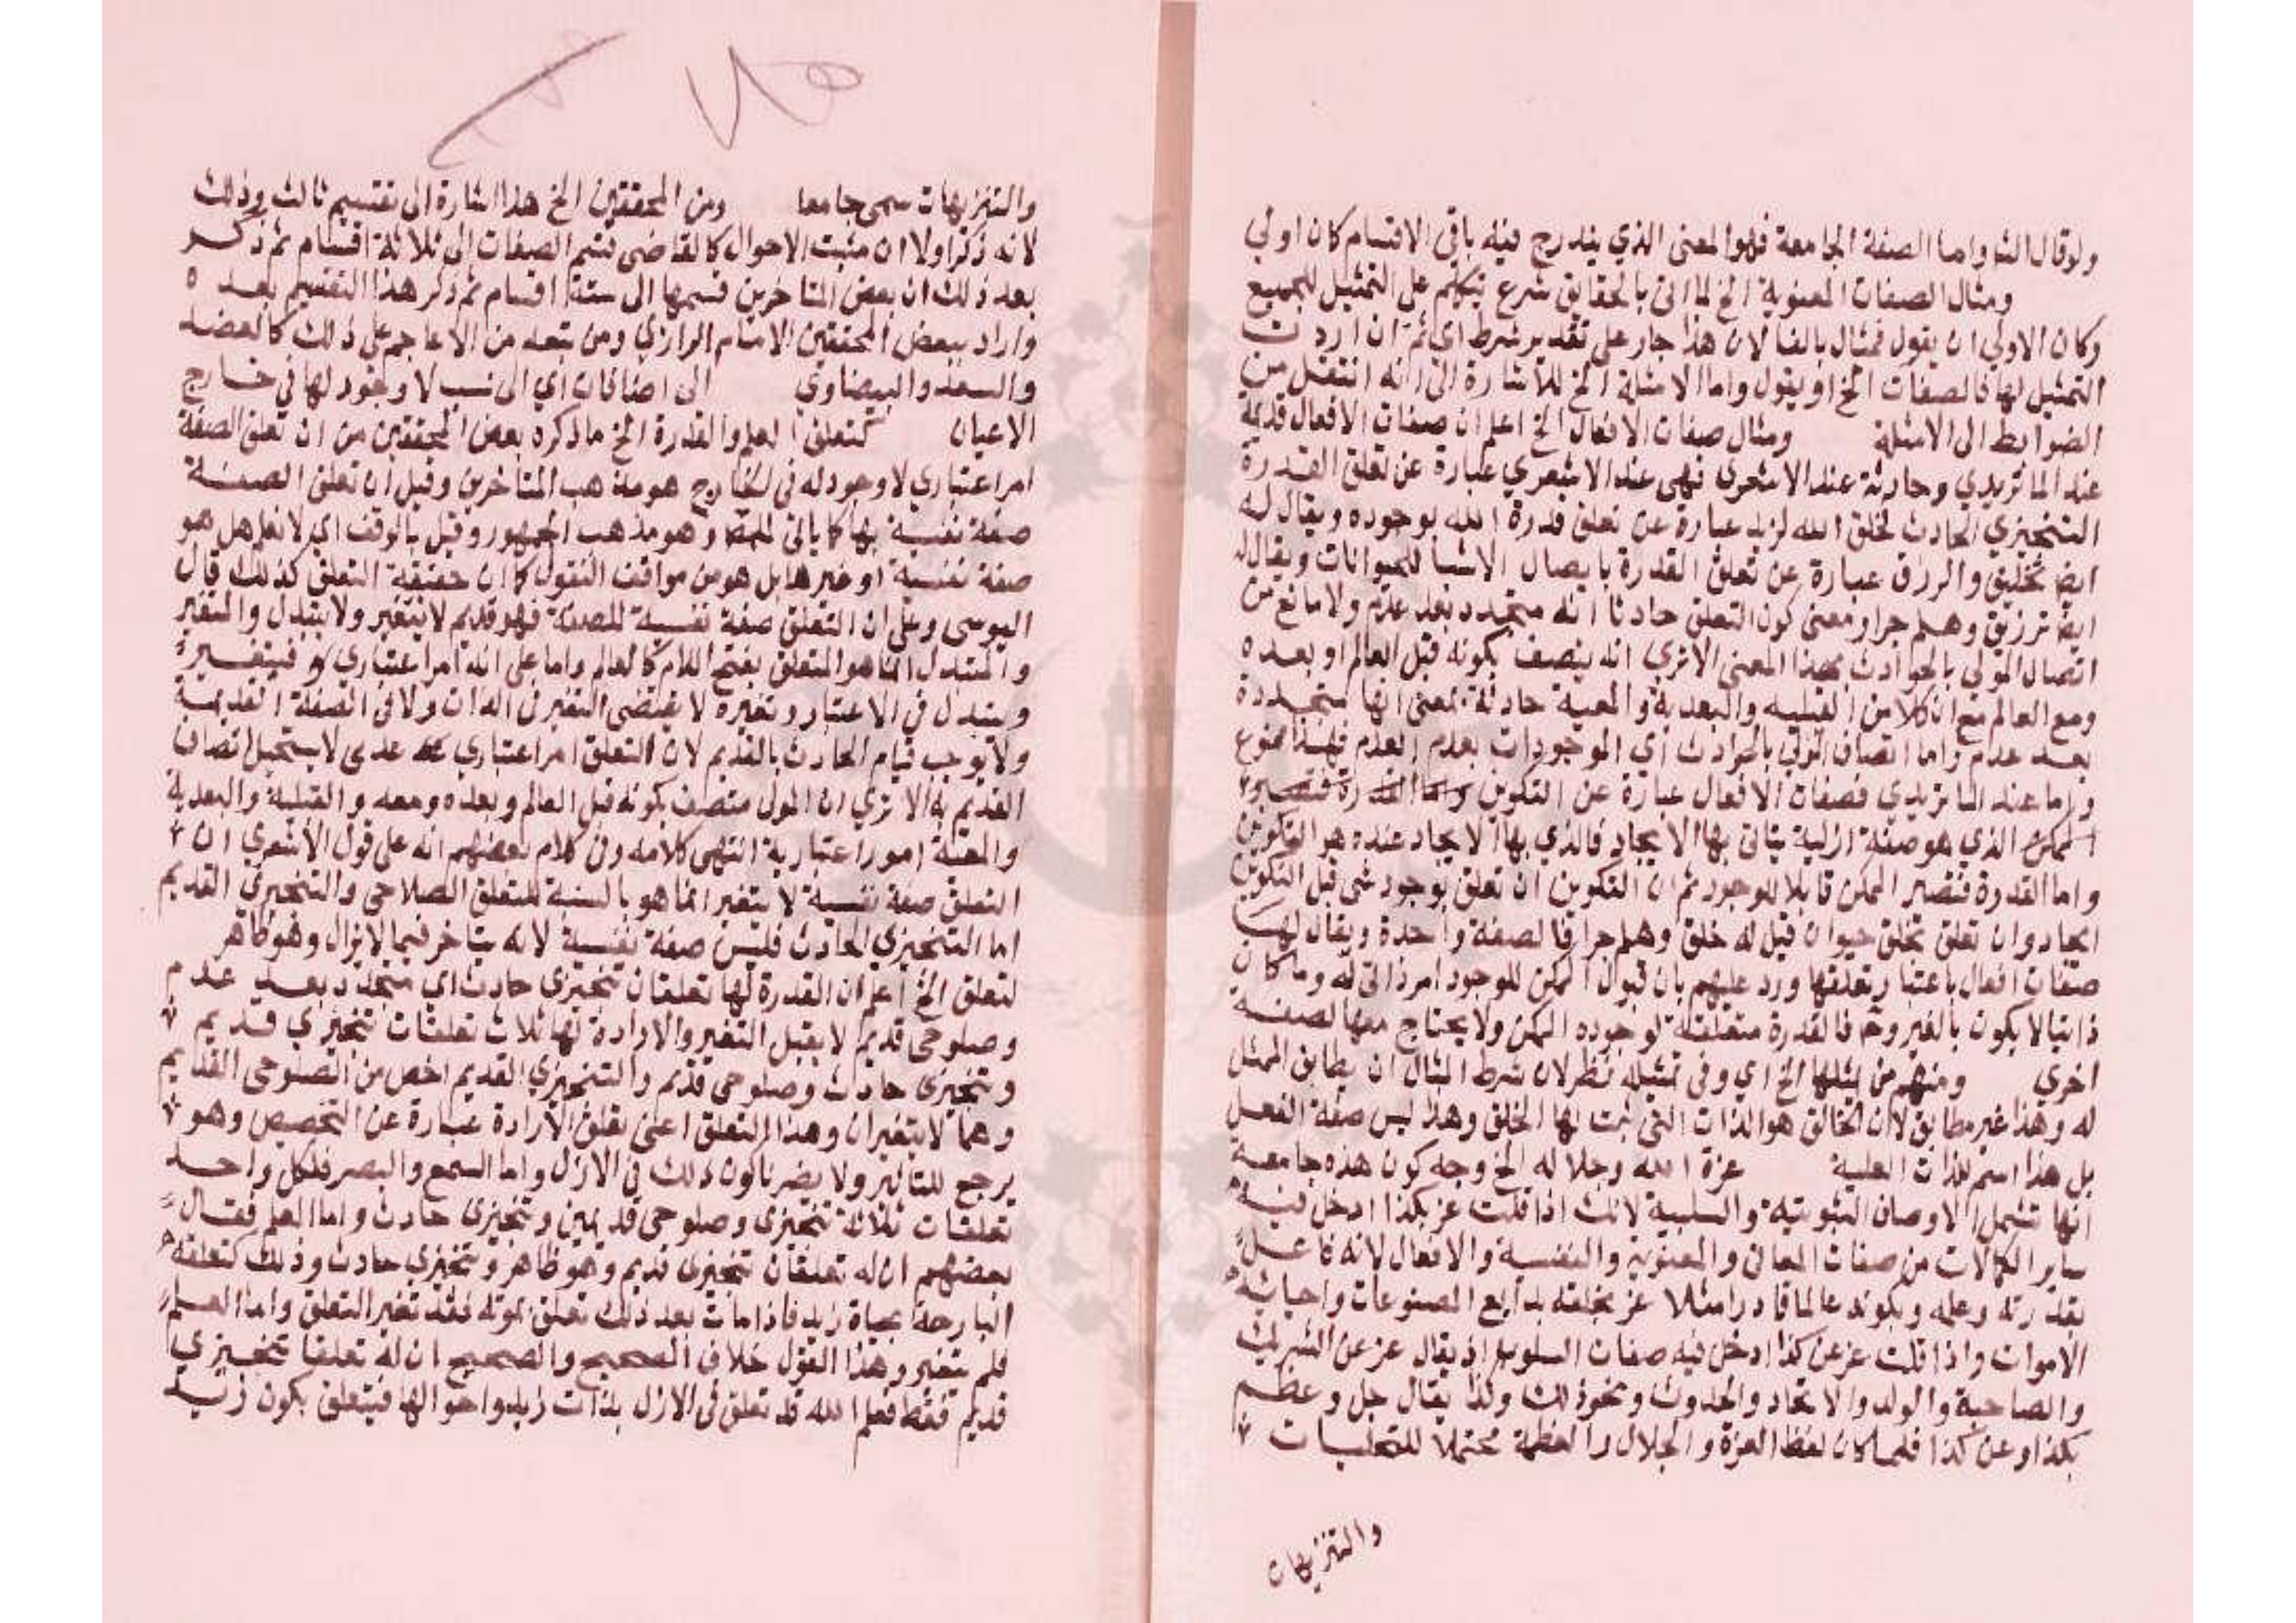 ولو قال الشا واما الصفة الجامعة فهو المعنى الذي يندرج فيه باقي الاقسام كان اولي
ومثال الصفات المعنوية الخ لما اتى بالحقايق شرع يتكلم على التمثيل للجميع
وكان الاولي ان يقول فمثال بالفا لان هذا جار على تقدير شرط اي ثم ان اردت
التمثيل لها فالصفات الخ او يقول واما الامثلة الخ للاشارة الى انه انتقل من
الضوابط الى الامثلة ومثال صفات الافعال الخ اعلم ان صفات الافعال قديمة
عند الماتريدي وحادثة عند الاشعري فهي عند الاشعري عبارة عن تعلق القدرة
التنجيزي الحادث فخلق الله لزيد عبارة عن تعلق قدرة الله بوجوده ويقال له
ايضا تخليق والرزق عبارة عن تعلق القدرة بايصال الاشيا للحيوانات ويقال له
ايضا ترزيق وهلم جرا ومعنى كون التعلق حادثا انه متجدد بعد عدم ولا مانع من
اتصال المولي بالحوادث بهذا المعنى الا ترى انه يتصف بكونه قبل العالم او بعده
ومع العالم مع ان كلا من القبلية والبعدية والمعية حادثة بمعنى انها متجددة
بعد عدم واما اتصاف المولي بالحوادث اي الموجودات بعدم العدم فهذا ممنوع
واما عند الماتريدي فصفات الافعال عبارة عن التكوين
الذي هو صفة ازلية يتاتى بها الايجاد فالذي بها الايجاد عنده هو التكوين
واما القدرة فتصير الممكن قابلا للوجود ثم ان التكوين ان تعلق بوجود شي قيل التكوين
ايجاد وان تعلق بخلق حيوان قيل له خلق وهلم جرا فالصفة واحدة ويقال لها
صفات افعال باعتبار تعلقها ورد عليهم بان قبول الممكن للوجود امر ذاتي له وما كان
ذاتيا لا يكون بالغير وح فالقدرة متعلقة لوجوده الممكن ولا يحتاج معها لصفة
اخري ومنهم من يمثلها الخ اي وفى تمثيله نظر لان شرط المثال ان يطابق الممثل
له وهذا غير مطابق لان الخالق هو الذات التي ثبت لها الخلق وهذا ليس صفة الفعل
بل هذا اسم للذات العلية عزة الله وجلاله الخ وجه كون هذه جامعة
انها تشمل الاوصاف الثبوتية والسلبية لانك اذا قلت عز بكذا ادخل فيه
ساير الكمالات من صفات المعاني والمعنوية والنفسية والافعال لانه فاعل
بقدرته وعلمه وبكونه عالما قادرا مثلا عز بخلقه بدايع المصنوعات واحيائه
الاموات واذا قلت عز عن كذا ادخل فيه صفات السلوب اذ يقال عز عن الشريك
والصاحبة والولد والاتحاد والحدوث ونحو ذلك ولذا يقال جل وعظم
بكذا وعن كذا فلما كان لفظ العزة والجلال والعظمة محتملا للتجليات
والتنزيهات
والتنزيهات سمي جامعا ومن المحققين الخ هذا اشارة الى تقسيم ثالث وذلك
لانه ذكر اولا ان مثبت الاحوال كالقاضي قسم الصفات الى ثلاثة اقسام ثم ذكر
بعد ذلك ان بعض المتاخرين قسمها الى ستة اقسام ثم ذكر هذا التقسيم بعده
واراد ببعض المحققين الامام الرازي ومن تبعه من الاعاجم على ذلك كالعضد
والسعد والبيضاوي الى اضافات اي الى نسب لا وجود لها في خارج
الاعيان كتعلق العلم والقدرة الخ ما ذكره بعض المحققين من ان تعلق الصفة
امر اعتباري لا وجود له في الخارج هو مذهب المتاخرين وقيل ان تعلق الصفة
صفة نفسية لها كما ياتي وهو مذهب الجمهور وقيل بالوقف اي لا نعلم هل هو
صفة نفسية او غيرها بل هو من مواقف العقول كما ان حقيقة التعلق كذلك قال
اليوسي وعلى ان التعلق صفة نفسية للصفة فهو قديم لا يتغير ولا يتبدل والمتغير
والمتبدل انما هو المتعلق بفتح اللام كالعالم واما على انه امر اعتباري فيتغير
ويتبدل في الاعتبار وتغيره لا يقتضي التغير في الذات ولا في الصفة القديمة
ولا يوجب قيام الحادث بالقديم لان التعلق امر اعتباري عدمي لا يستحيل اتصاف
القديم به الا ترى ان المولى متصف بكونه قبل العالم وبعده ومعه والقبلية والبعدية
والمعية امور اعتبارية انتهى كلامه وفى كلام بعضهم انه على قول الاشعري ان
التعلق صفة نفسية لا يتغير انما هو بالنسبة للتعلق الصلاحي والتنجيزي القديم
اما التنجيزي الحادث فليس صفة نفسية لانه يتاخر فيما لا يزال وهو ظاهر
لتعلق الخ اعلم ان القدرة لها تعلقان تنجيزي حادث اي متجدد بعد عدم
وصلوحي قديم لا يقبل التغير والارادة لها ثلاث تعلقات تنجيزي قديم
وتنجيزي حادث وصلوحي قديم والتنجيزي القديم اخص من الصلوحي القديم
وهما لا يتغيران وهذا التعلق اعني تعلق الارادة عبارة عن التخصيص وهو
يرجع للتاثير ولا يضرنا كون ذلك في الازل واما السمع والبصر فلكل واحد
تعلقات ثلاثة تنجيزي وصلوحي قديمين وتنجيزي حادث واما العلم فقال
بعضهم ان له تعلقان تنجيزي قديم وهو ظاهر وتنجيزي حادث وذلك كتعلقه
البارحة بحياة زيد فاذا مات بعد ذلك تعلق بموته فقد تغير التعلق واما العلم
فلم يتغير وهذا القول خلاف الصحيح والصحيح ان له تعلقا تنجيزي
قديم فقط فعلم الله قد تعلق في الازل بذات زيد واحوالها فيتعلق بكون زيد